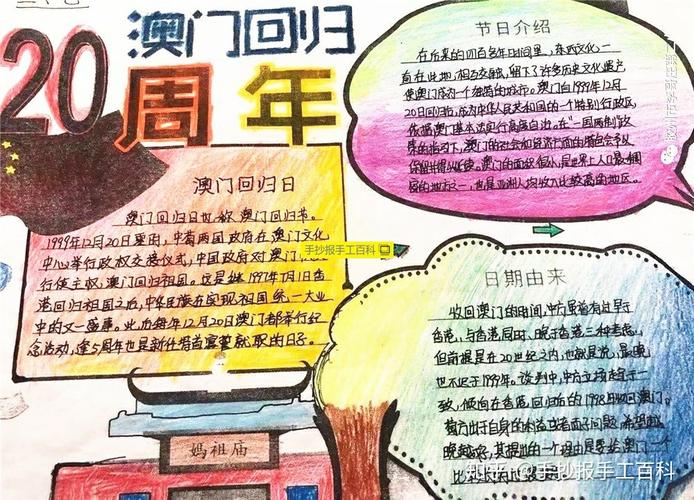 澳门回归
20周年
节日介绍
在后来的四百多年时间里,东西文化一
直在此地相互交融,留下了许多历史文化遗产
使澳门成为一个独特的城市。澳门自1999年12月
20日回归后,成为中华人民共和国的一个特别行政区,
依据澳门基本法实行高度自治。在"一国两制"政
策的指引下,澳门的社会和经济方面的特色会予以
保留并得以延续。澳门的面积很小,是世界上人口最稠
密的地方之一,也是亚洲人均收入比较高的地区。
澳门回归日
澳门回归日也称澳门回归节。
1999年12月20日零时,中葡两国政府在澳门文化
中心举行政权交接仪式,中国政府对澳门
行使主权,澳门回归祖国。这是继1997年7月1日香
港回归祖国之后,中华民族在实现祖国统一大业
中的又一盛事。此后每年12月20日澳门都举行纪
念活动,逢5周年也是新任特首宣誓就职的日子。
手抄报手工百科
日期由来
收回澳门的时间,中方虽曾有过早于
香港,与香港同时,晚于香港三种考虑,
但前提是在20世纪之内,也就是说,最晚
也不迟于1999年。谈判中,中方立场趋于一
致,倾向在香港回归后的1998年收回澳门。
葡方出于自身的利益或者面子问题,希望越
晚越好,其提出的一个理由是要给澳门一个
妈祖庙
知乎 @手抄报手工百科